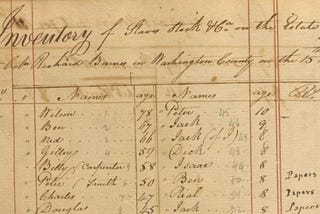 Inventory of Slaves Stock &Ca on the Estate
Richard Barnes in Washington County on the 15th
Names age Names age
" Wilson 78 " Peter 45 10
" Ben 67 " Jack 46 9
" Ned 66 " Jack (of J) 8
" 59 " Dick 48 8
" Betty (Carpenter 58 " Isaac 8
" Peter (Smith 50 " Ben 8 Papers
" Charles 47 " Paul 8 papers
" Douglas 45 " Jack 8 Papers